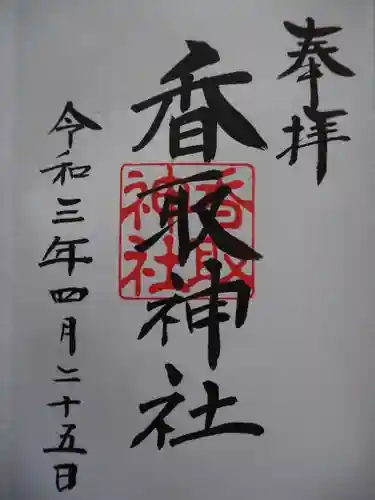 奉拝
香取神社
香取
神社
令和三年四月二十五日